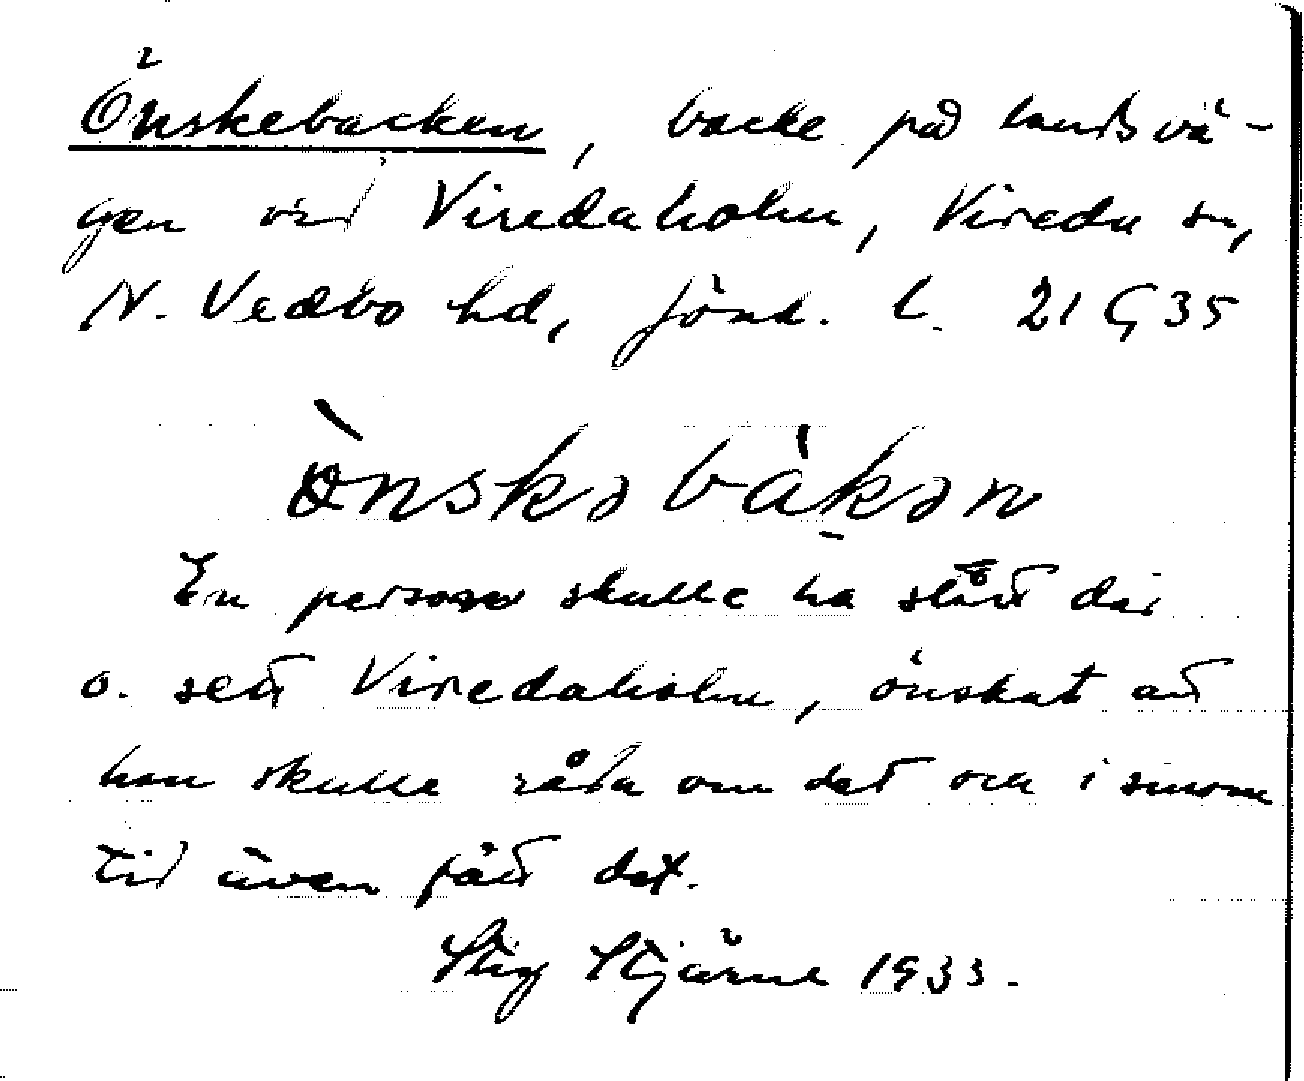 Önskebacken, backe på landsvä-
gen vid Viredaholm, Vireda sn,
N. Vedbo hd, Jönk. l. 21 G 35
ònskə bàkən
En person skulle ha stått där
o. sett Viredaholm, önskat att
han skulle råda om det och i sinom
tid även fått det.
Stig Stjärne 1933.